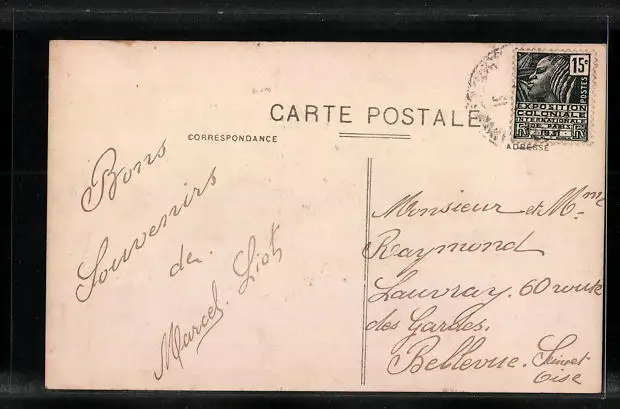 CARTE POSTALE
CORRESPONDANCE
ADRESSE
15c
POSTES
EXPOSITION
COLONIALE
INTERNATIONALE
PARIS
1931
RF
Bons
Souvenirs
de
Marcel Liot
Monsieur et Mme
Raymond
Lauvray. 60 route
des Gardes.
Bellevue. Seine et
Oise